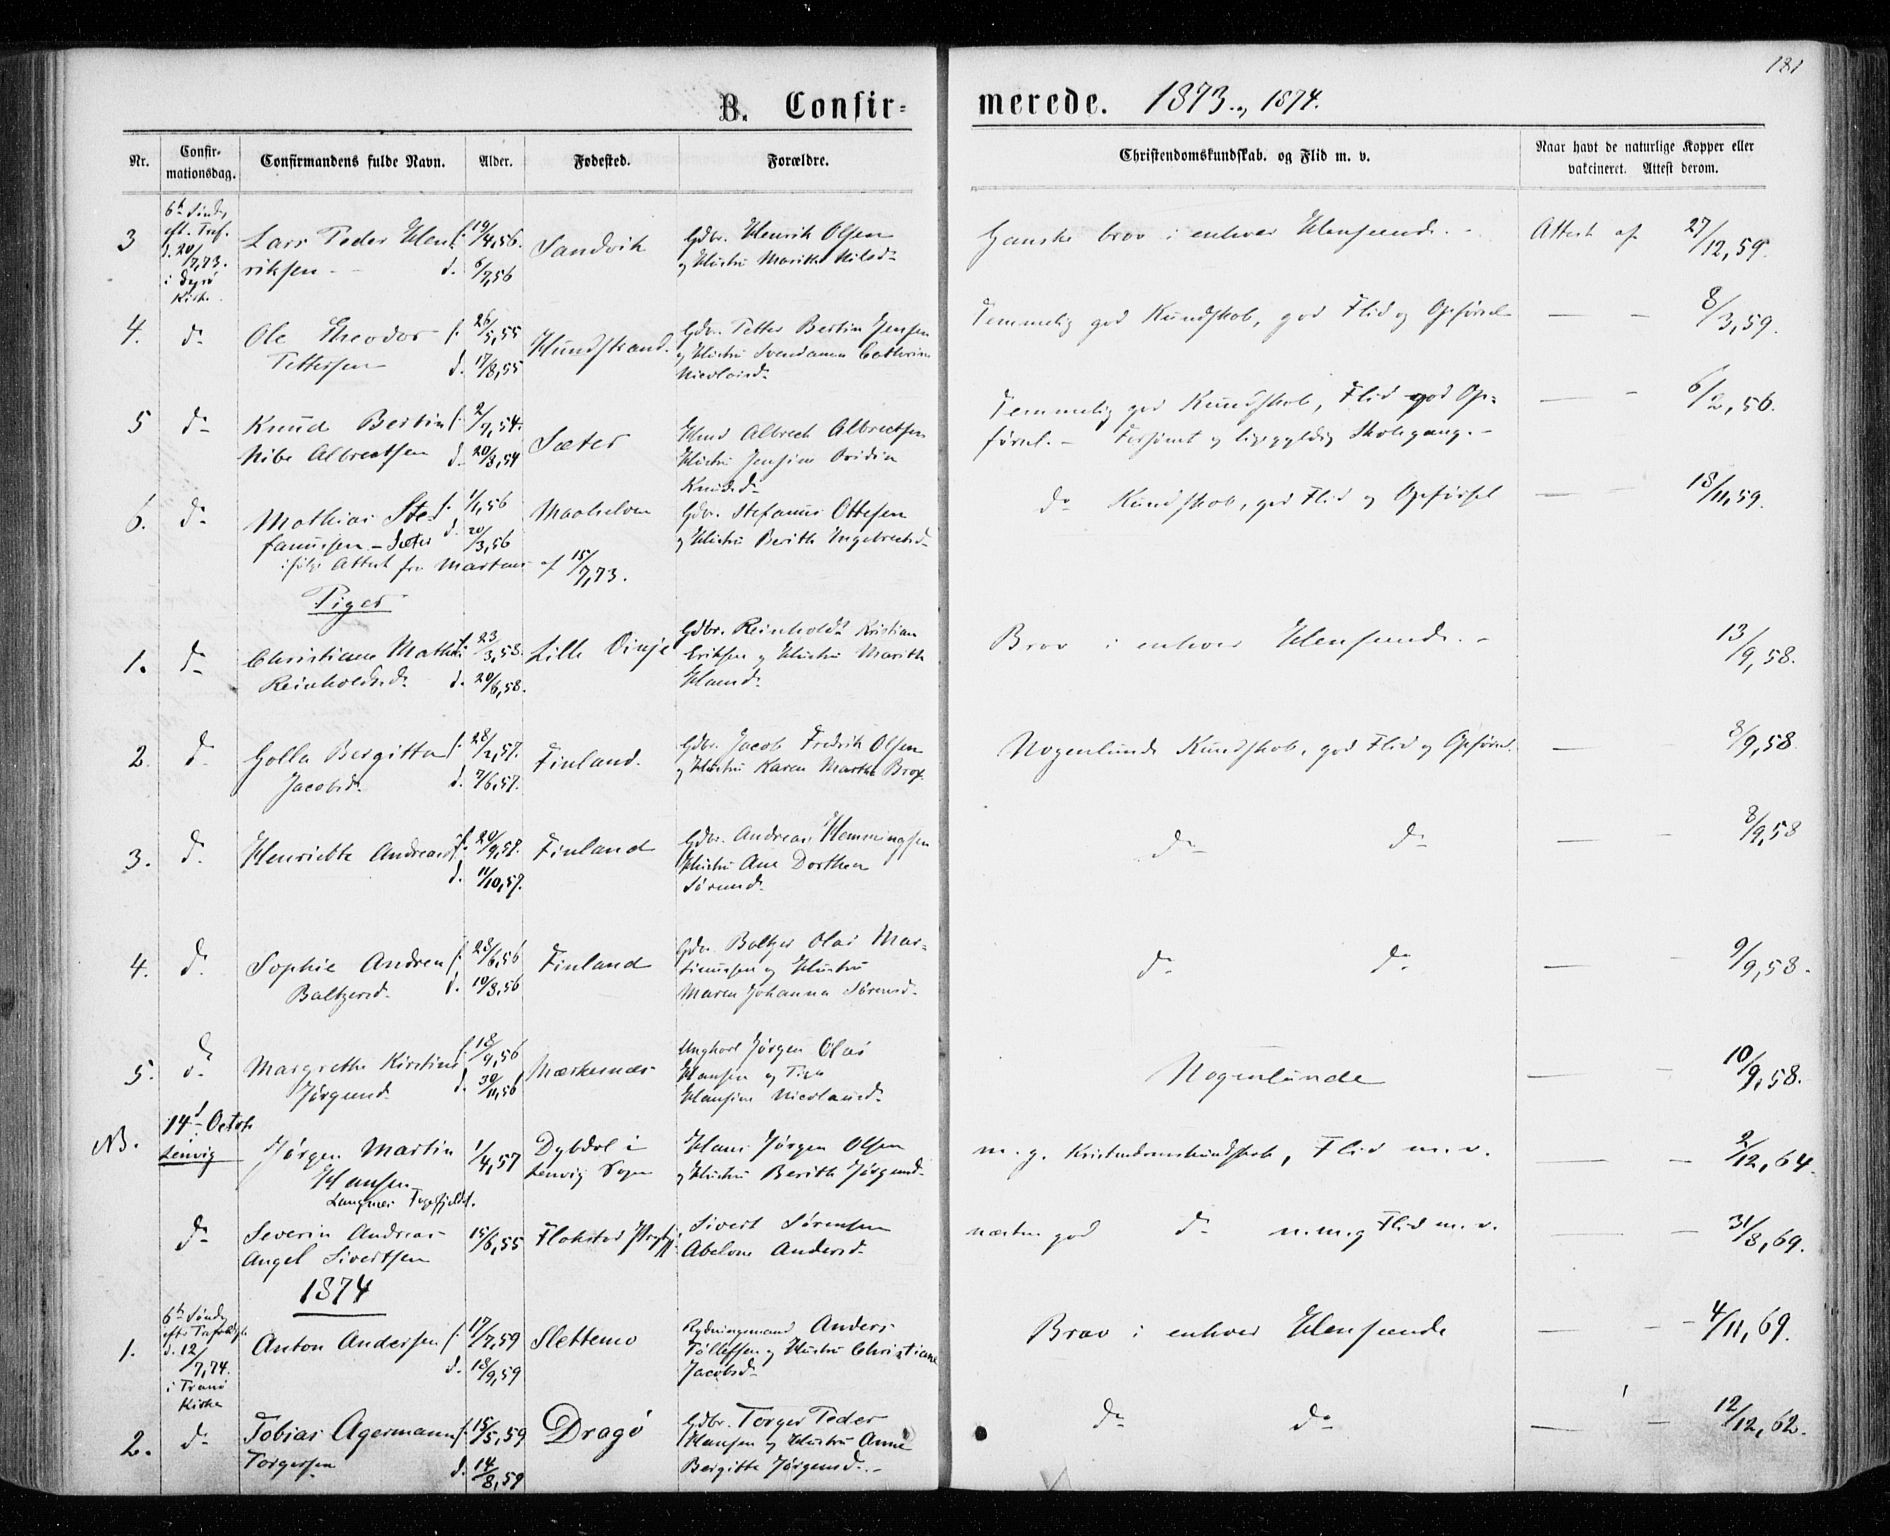 181
B. Confir-
merede. 1873 1874.
Nr.
Confir-
mationsdag.
Confirmandens fulde Navn.
Alder.
Fødested.
Forældre.
Christendomskundskab, og Flid m. v.
Naar havt de naturlige Kopper eller
vakcineret. Attest derom.
3 Lars Peder Hen- f. 19/4,56. Sandvik Gdbr. Henrik Olsen Ganske brav i enhver Henseende. - Attest af 27/12,59.
20/7,73. riksen - d. 6/7,56 og Hustru Marith Nilsd.
i Dyrø
Kirke
4. do Ole Theodor f. 26/5,55 Hundstrand. Gdbr. Petter Bertin Jensen Temmelig god Kundskab, god Flid og Opførsel — - 8/3,59.
Pettersen d. 17/8,55 og Hustru Cathrine
Nicolaisd.
5 do Knud Bertin f. 2/7,54. Sæter Albrecht Albrectsen Temmelig god Kundskab, Flid god Op- — - 6/2,56.
Nibe Albrectsen d. 20/8,54 Hustru Jensine
førsel. - Forsømt og ligegyldig Skolegang. -
Knudsd.
6. do Mathias Ste- f. 1/1,56 Maalselven Gdbr. Stefanus Ottesen do Kundskab, god Flid og Opførsel — - 18/11,59.
fanussen - Sæter d. 20/3,56 og Hustru Berith Ingebrectsd.
ifølge Attest fra Martens af 15/7,73.
Piger
1. do Christiane Mathea f. 23/3,58. Lille Vinje Gdbr. Reinholdt Kristian Brav i enhver Henseende. - 13/9,58.
Reinholdsd. d. 20/6,58. Eriksen og Hustru Marith
Hansd.
2. do Golla Bergitta f. 28/2,57. Finland. Gdbr. Jacob Fredrik Olsen Nogenlunde Kundskab, god Flid og Opførsel. — - 8/9,58.
Jacobsd. d. 7/6,57. og Hustru Karen Marthe Brox.
3. do Henriette Andreasd. f. 20/9,57. Finland Gdbr. Andreas Hemmingsen do do — - 8/9,58
d. 11/10,57. Hustru Ane Dorthea
Sørensd.
4. do Sophie Andrea f. 28/6,56 Finland Gdbr. Baltzer Olai Mar- do do — - 9/9,58.
Baltzersd. d. 10/8,56 og Hustru
Maren Johanna Sørensd.
5. do Margrethe Kirstine f. 18/9,56 Mærkenæs Ungkarl Jørgen Olai Nogenlunde — - 10/9,58.
Jørgensd. d. 30/11,56 Hansen og Pige
Hansine Nicolaisd.
NB. 14d Octob Jørgen Martin 1/4,57 Dybdal i Hans Jørgen Olsen m. g. Kristendomskundskab, Flid m. v. — - 2/12,64.
Lenvig Hansen Lenvig Sogn og Hustru Berith Jørgensd.
Langnes
do Severin Andreas 15/6,55 Flakstad Sivert Sørensen næsten god do m.m.g Flid m. v. — - 31/8,69.
Angel Sivertsen Abelone Andersd.
1874
1. Anton Andersen f. 17/7,59 Slettemo Rydningsmand Anders Brav i enhver Henseende — - 4/11,69.
d. 12/7,74. d. 18/9,59 Tøllefsen og Hustru Christiane
i Tranø Jacobsd.
Kirke
2. do Tobias Agermann f. 15/5,59 Dragø Gdbr. Torger Peder do do — - 12/12,62.
Torgersen d. 14/8,59 Hansen og Hustru Anne
Bergitte Jørgensd. -